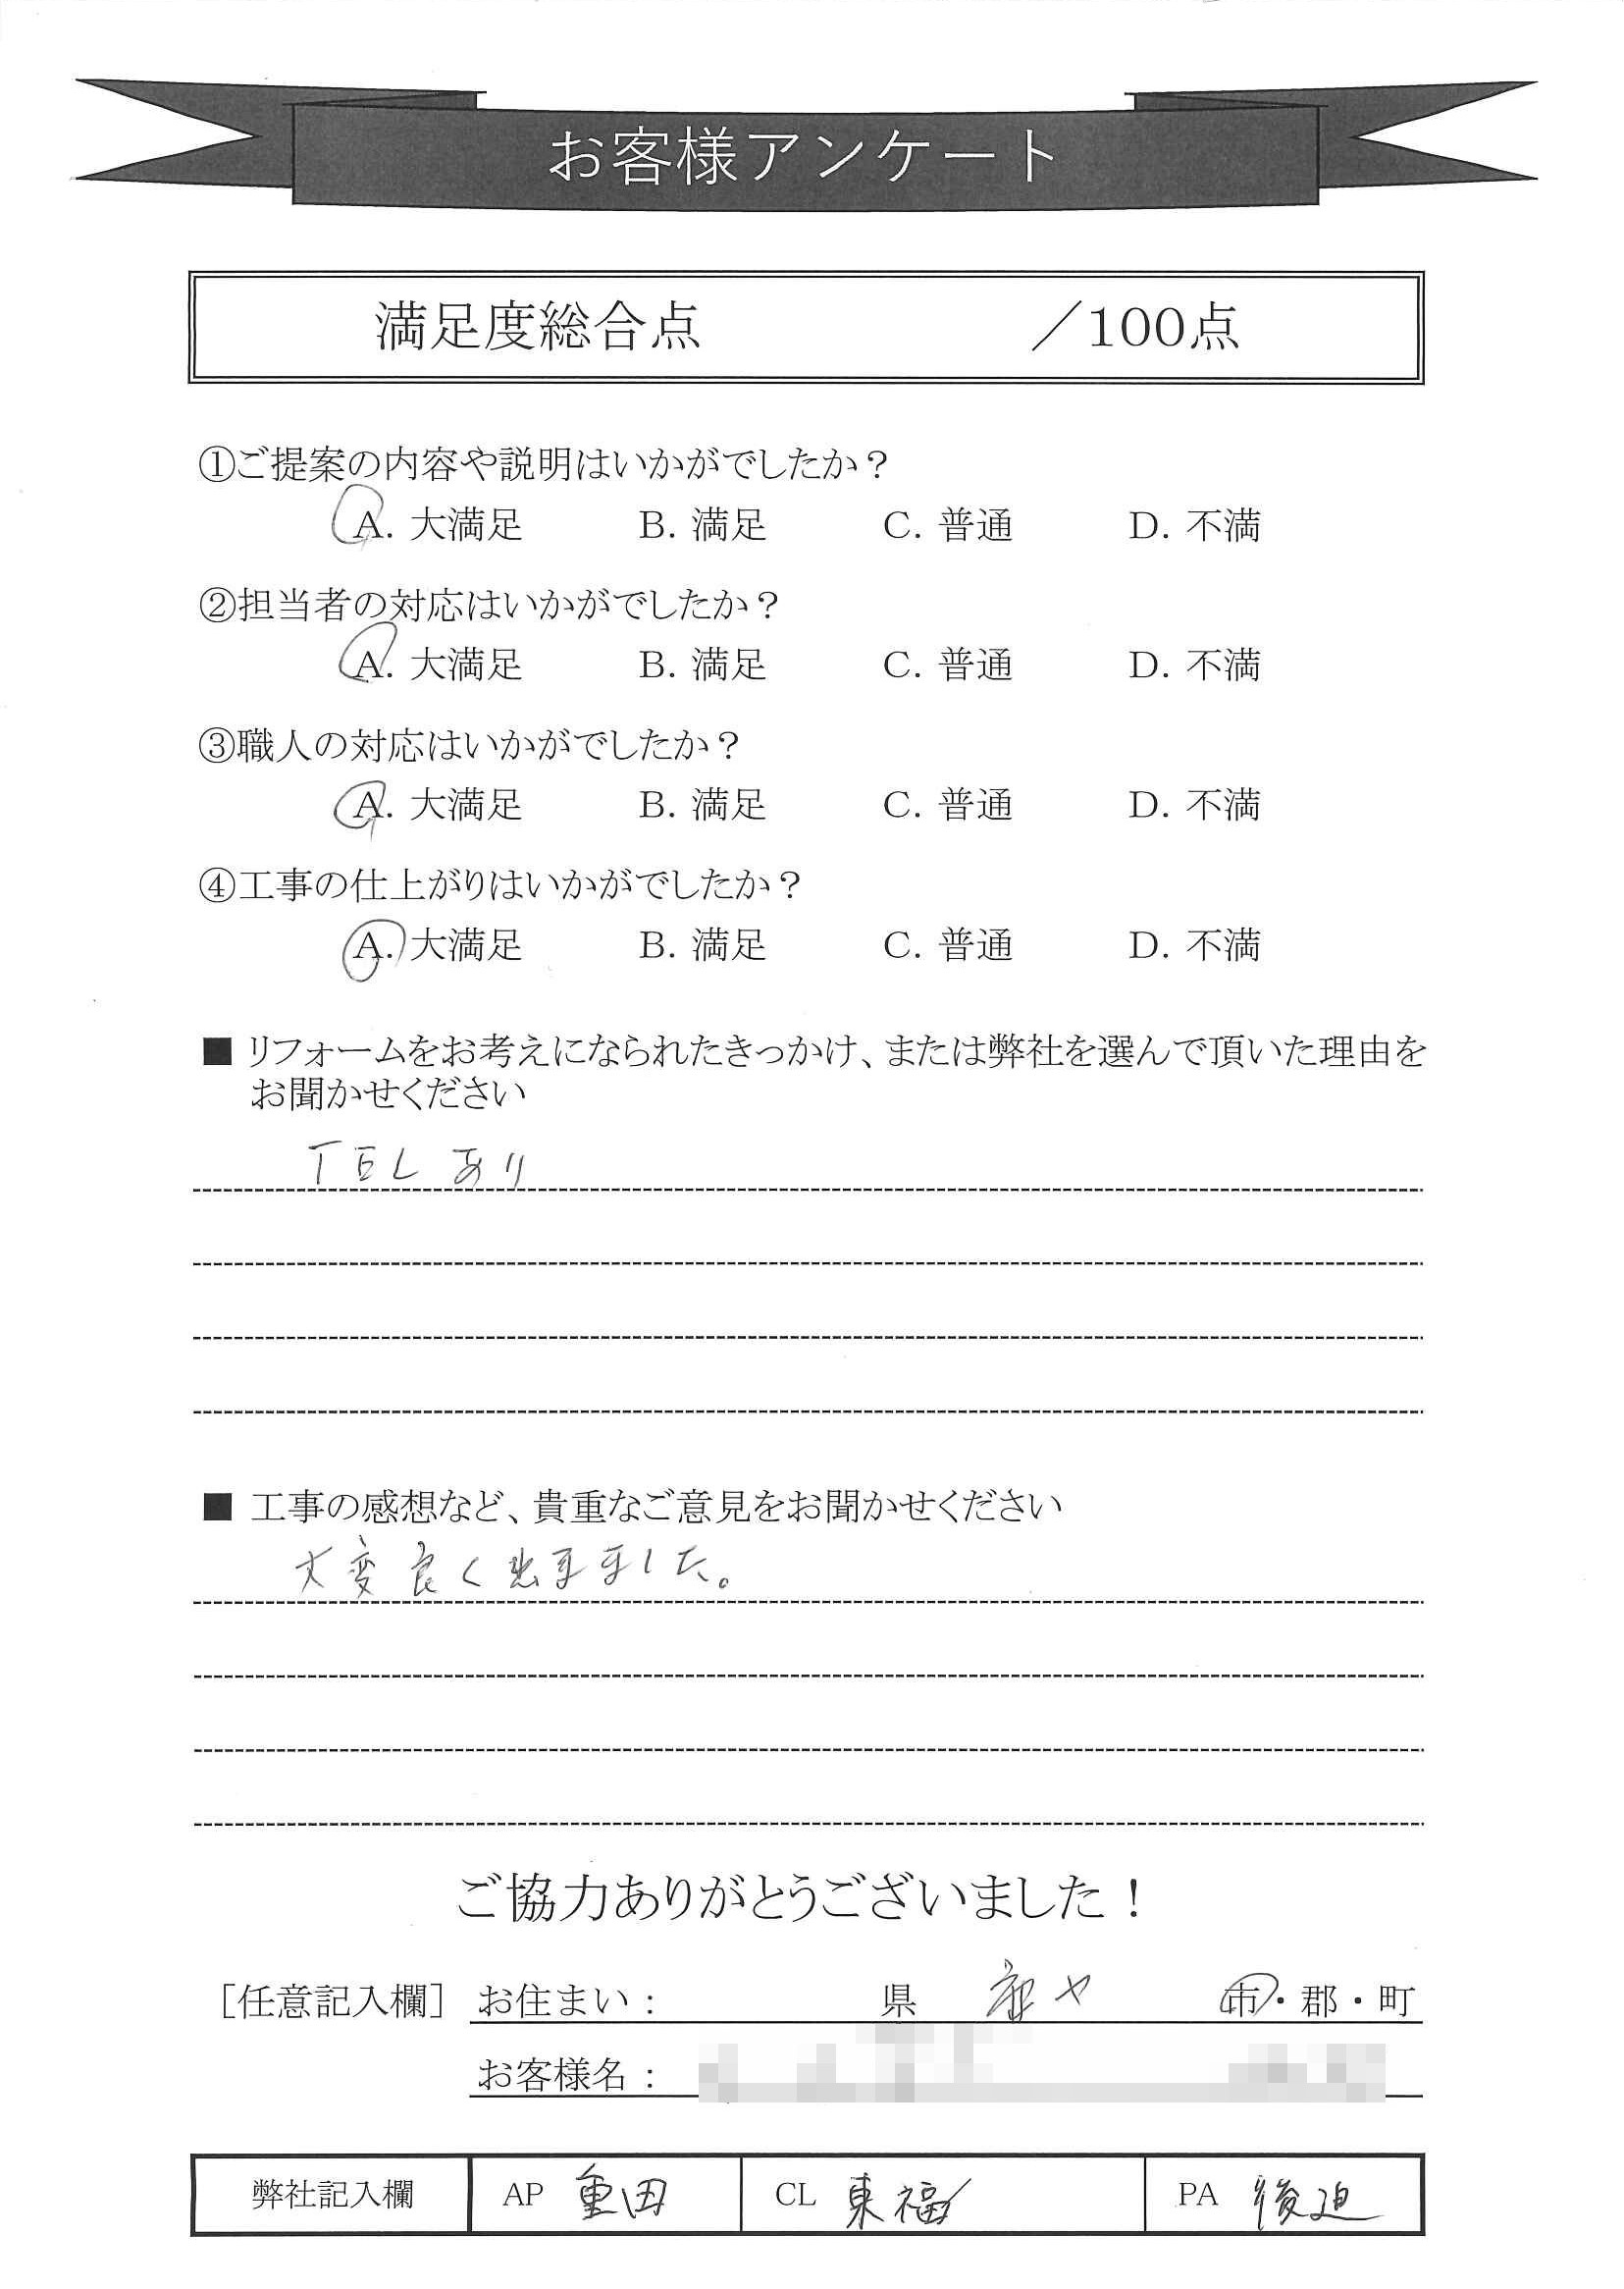 お客様アンケート
満足度総合点　／100点
①ご提案の内容や説明はいかがでしたか？
A. 大満足　B. 満足　C. 普通　D. 不満
②担当者の対応はいかがでしたか？
A. 大満足　B. 満足　C. 普通　D. 不満
③職人の対応はいかがでしたか？
A. 大満足　B. 満足　C. 普通　D. 不満
④工事の仕上がりはいかがでしたか？
A. 大満足　B. 満足　C. 普通　D. 不満
■ リフォームをお考えになられたきっかけ、または弊社を選んで頂いた理由を
お聞かせください
TELあり
■ 工事の感想など、貴重なご意見をお聞かせください
大変良く出来ました。
ご協力ありがとうございました！
［任意記入欄］ お住まい：　県　市・郡・町
お客様名：
弊社記入欄　AP 重田　CL 東福　PA 後迫